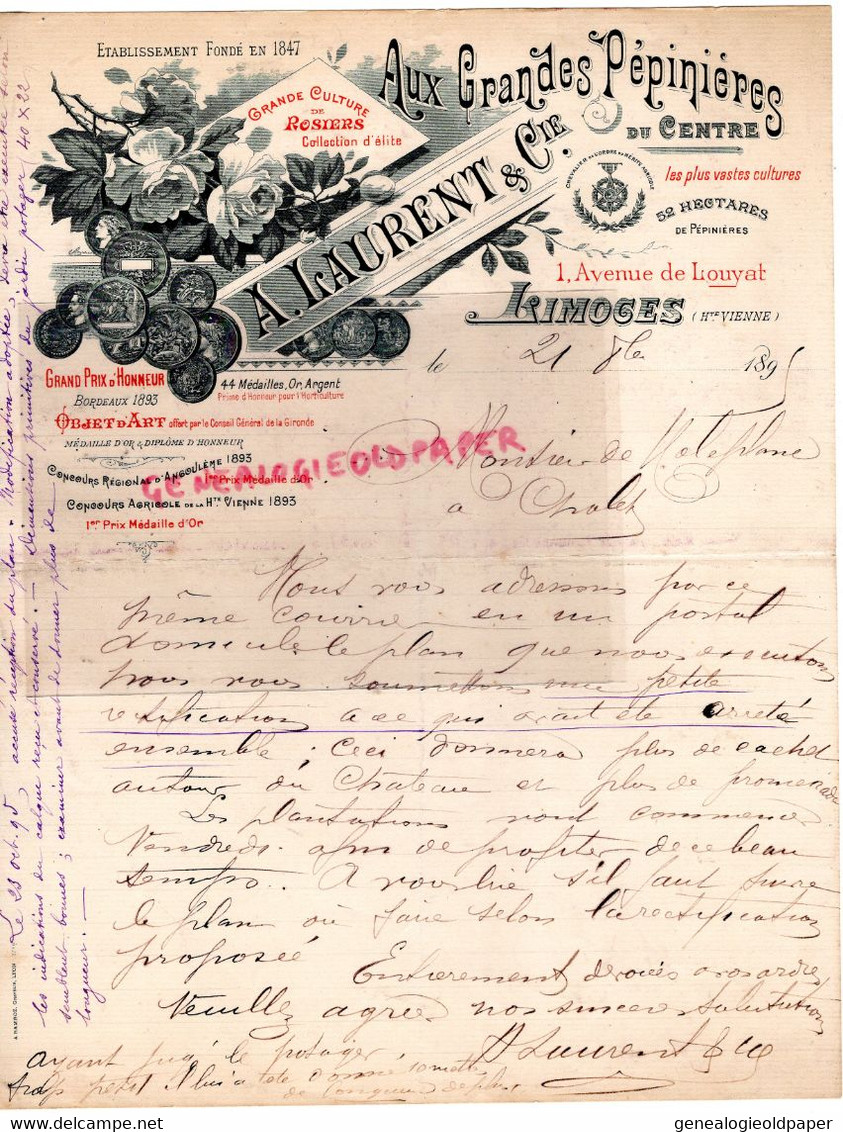 ETABLISSEMENT FONDÉ EN 1847
AUX GRANDES PÉPINIÈRES
DU CENTRE
GRANDE CULTURE
DE
ROSIERS
Collection d'élite
A. LAURENT & CIE.
CHEVALIER DE L'ORDRE DU MÉRITE AGRICOLE
les plus vastes cultures
52 HECTARES
DE PÉPINIÈRES
1, Avenue de Louyat
LIMOGES (HTE VIENNE)
le 21 8bre 1895
GRAND PRIX D'HONNEUR
BORDEAUX 1893
OBJET D'ART offert par le Conseil Général de la Gironde
MÉDAILLE D'OR & DIPLÔME D'HONNEUR
44 Médailles, Or, Argent
Prime d'Honneur pour l'Horticulture
CONCOURS RÉGIONAL D'ANGOULÊME 1893
1er Prix Médaille d'Or
CONCOURS AGRICOLE DE LA HTE VIENNE 1893
1er Prix Médaille d'Or
GENEALOGIEOLDPAPER
Monsieur de
a Chalet
Nous vous adressons par ce
même courrier en un postal
domicile le plan que nous executons
nous vous soumettons une petite
rectification a ce qui avait été arreté
ensemble ; Ceci donnera plus de cachet
autour du Chateau et plus de promenade
Les plantations vont commencer
Vendredi afin de profiter de ce beau
temps.. A vous lire s'il faut suivre
le plan ou faire selon la rectification
proposée
Entierement devoués a vos ordres
Veuillez agréer nos sinceres salutations
A Laurent & Cie
ayant jugé le potager
trop petit il lui a été donné
de longueur de plus
Le 23 oct. 95, accusé réception du plan. Modification adoptée, devra être exécutée selon
les indications du calque reçu et conservé. — Dimensions primitives du jardin potager (40 x 22
semblent bonnes ; examiner avant de donner plus de
longueur. —
genealogieoldpaper